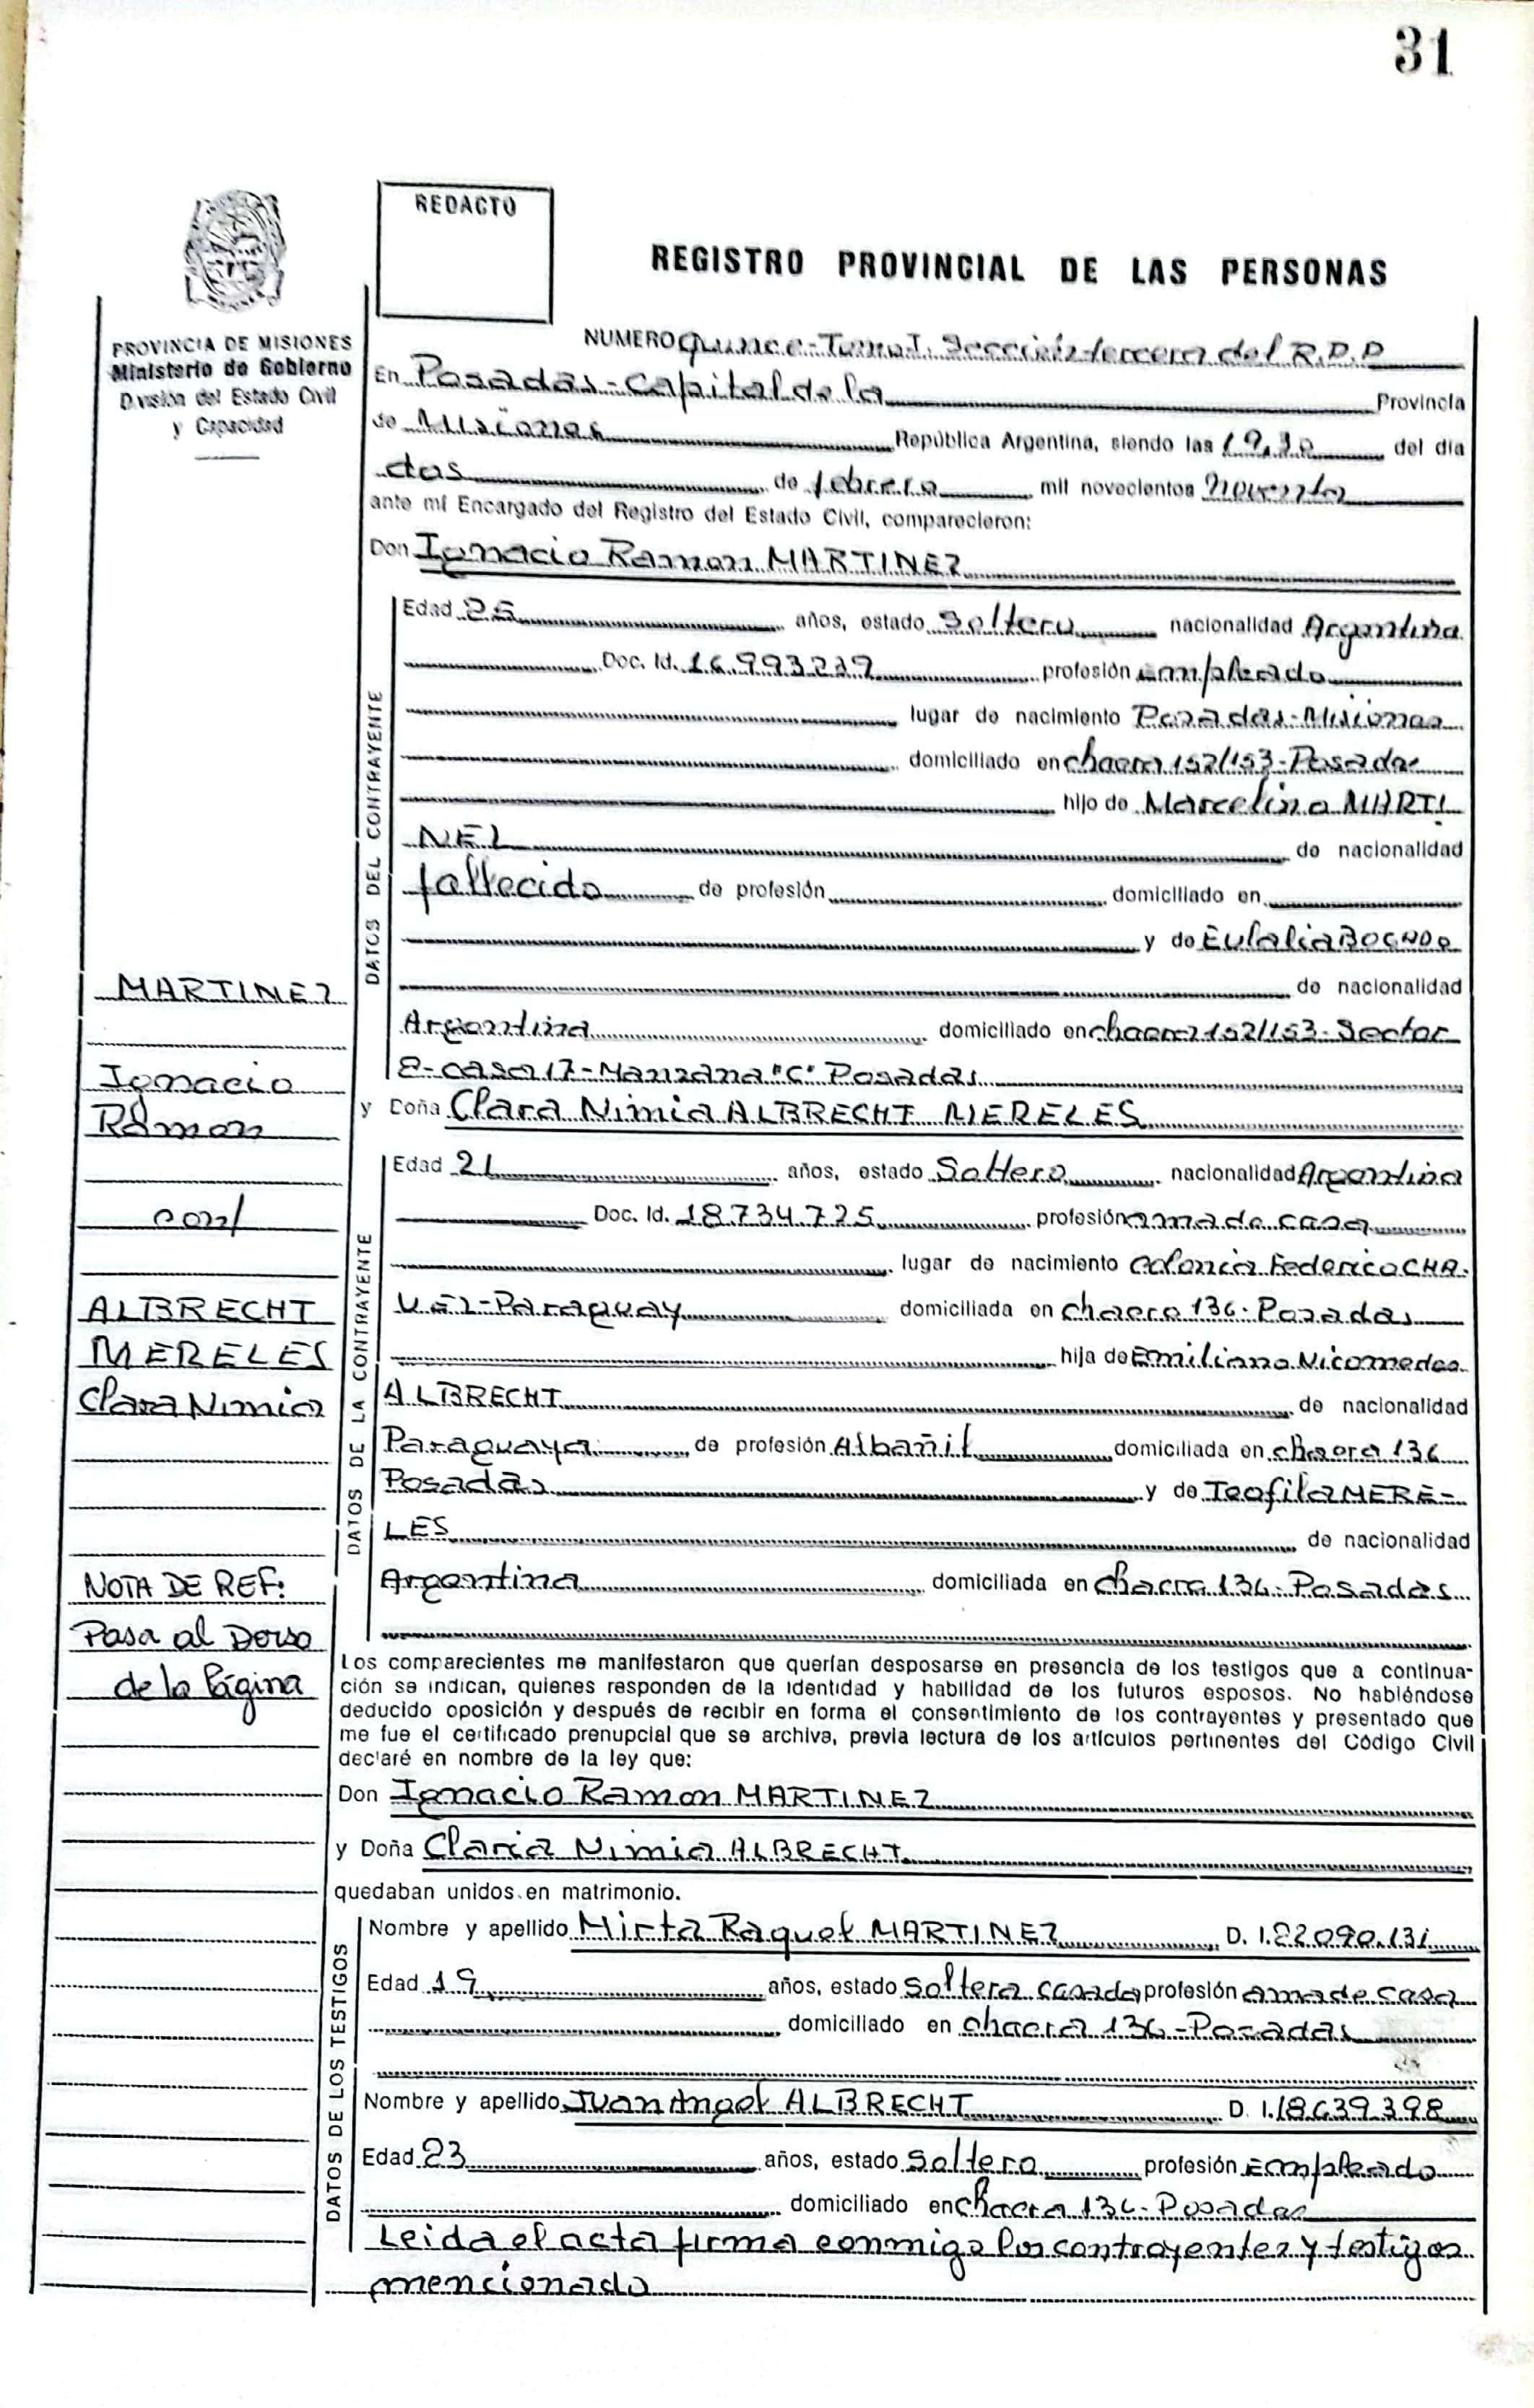 31
REDACTO
REGISTRO PROVINCIAL DE LAS PERSONAS
PROVINCIA DE MISIONES
Ministerio de Gobierno
División del Estado Civil
y Capacidad
NUMERO Quince - Tomo I. Sección tercera del R.P.P
En Posadas - Capital de la Provincia
de Misiones República Argentina, siendo las 19,30 del día
dos de febrero mil novecientos noventa
ante mí Encargado del Registro del Estado Civil, comparecieron:
Don Ignacio Ramon MARTINEZ
DATOS DEL CONTRAYENTE
Edad 25 años, estado Soltero nacionalidad Argentina
Doc. Id. 16.993.239 profesión empleado
lugar de nacimiento Posadas - Misiones
domiciliado en chacra 152/153 - Posadas
hijo de Marcelino MARTI
NEZ de nacionalidad
fallecido de profesión domiciliado en
y de Eulalia BOGADO
de nacionalidad
Argentina domiciliado en chacra 152/153 - Sector
2 - casa 17 - Manzana "C" Posadas
y Doña Clara Nimia ALBRECHT MERELES
DATOS DE LA CONTRAYENTE
Edad 21 años, estado Soltera nacionalidad Argentina
Doc. Id. 18.734.725 profesión ama de casa
lugar de nacimiento Colonia Federico CHA-
VEZ - Paraguay domiciliada en chacra 136 - Posadas
hija de Emiliano Nicomedes
ALBRECHT de nacionalidad
Paraguaya de profesión Albañil domiciliada en chacra 136
Posadas y de Teofila MERE-
LES de nacionalidad
Argentina domiciliada en chacra 136 - Posadas
MARTINEZ
Ignacio
Ramon
con/
ALBRECHT
MERELES
Clara Nimia
NOTA DE REF:
Pasa al Dorso
de la Página
Los comparecientes me manifestaron que querían desposarse en presencia de los testigos que a continua-
ción se indican, quienes responden de la identidad y habilidad de los futuros esposos. No habiéndose
deducido oposición y después de recibir en forma el consentimiento de los contrayentes y presentado que
me fue el certificado prenupcial que se archiva, previa lectura de los artículos pertinentes del Código Civil
declaré en nombre de la ley que:
Don Ignacio Ramon MARTINEZ
y Doña Claria Nimia ALBRECHT
quedaban unidos en matrimonio.
DATOS DE LOS TESTIGOS
Nombre y apellido Mirta Raquel MARTINEZ D. I. 22.090.131
Edad 19 años, estado Soltera casada profesión ama de casa
domiciliado en chacra 136 - Posadas
Nombre y apellido Juan Angel ALBRECHT D. I. 18.639.398
Edad 23 años, estado Soltero profesión Empleado
domiciliado en chacra 136 - Posadas
Leida el acta firma conmigo los contrayentes y testigos
mencionado